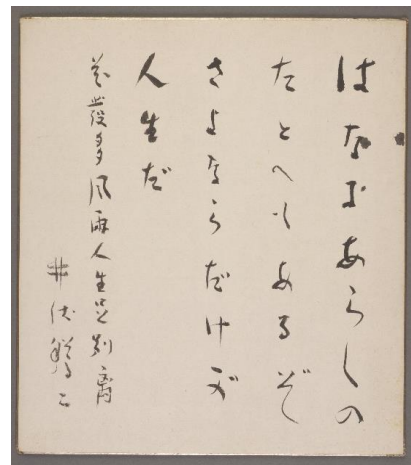 はなにあらしの
たとへもあるぞ
さよならだけが
人生だ
花發多風雨人生足別離
井伏鱒二